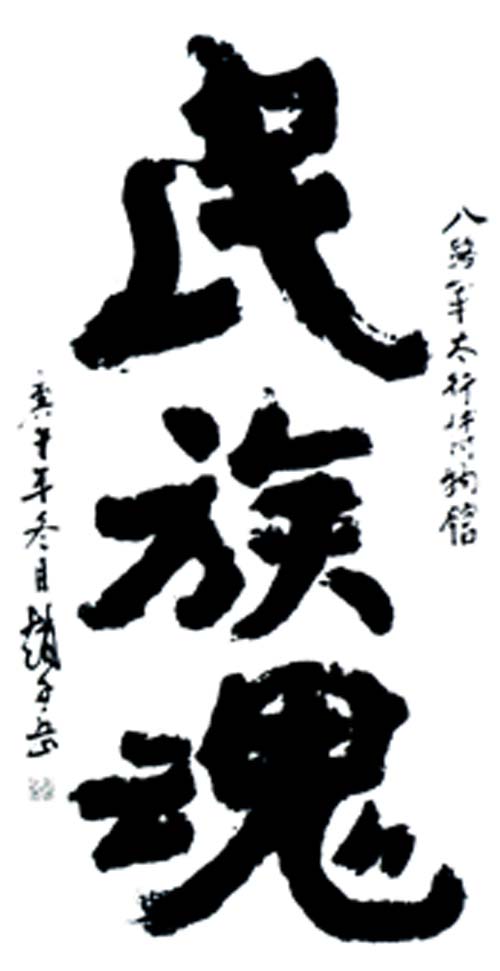 八路军太行纪念馆
民族魂
庚午年冬月赵子岳